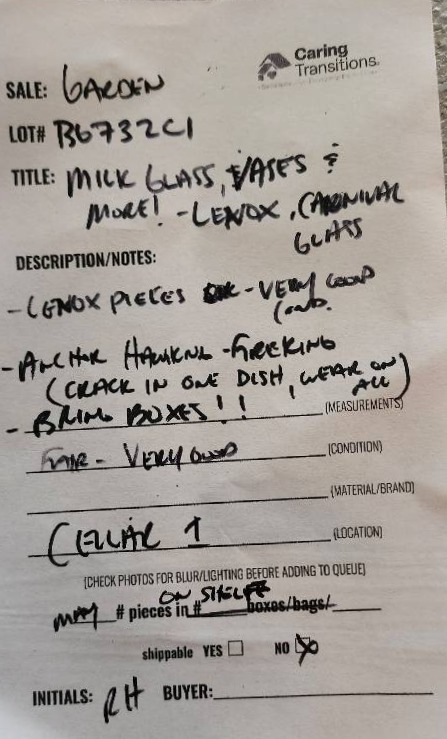 Caring
Transitions
SALE: GARDEN
LOT# B6732C1
TITLE: MILK GLASS, VASES &
MORE! - LENOX, CARNIVAL
GLASS
DESCRIPTION/NOTES:
- LENOX PIECES - VERY GOOD
COND.
- ANCHOR HAWKING - FIREKING
(CRACK IN ONE DISH, WEAR ON
ALL)
- BRING BOXES!! (MEASUREMENTS)
FAIR - VERY GOOD (CONDITION)
(MATERIAL/BRAND)
CELLAR 1 (LOCATION)
(CHECK PHOTOS FOR BLUR/LIGHTING BEFORE ADDING TO QUEUE)
ON SHELF
MANY # pieces in # boxes/bags/
shippable YES NO
INITIALS: RH BUYER: